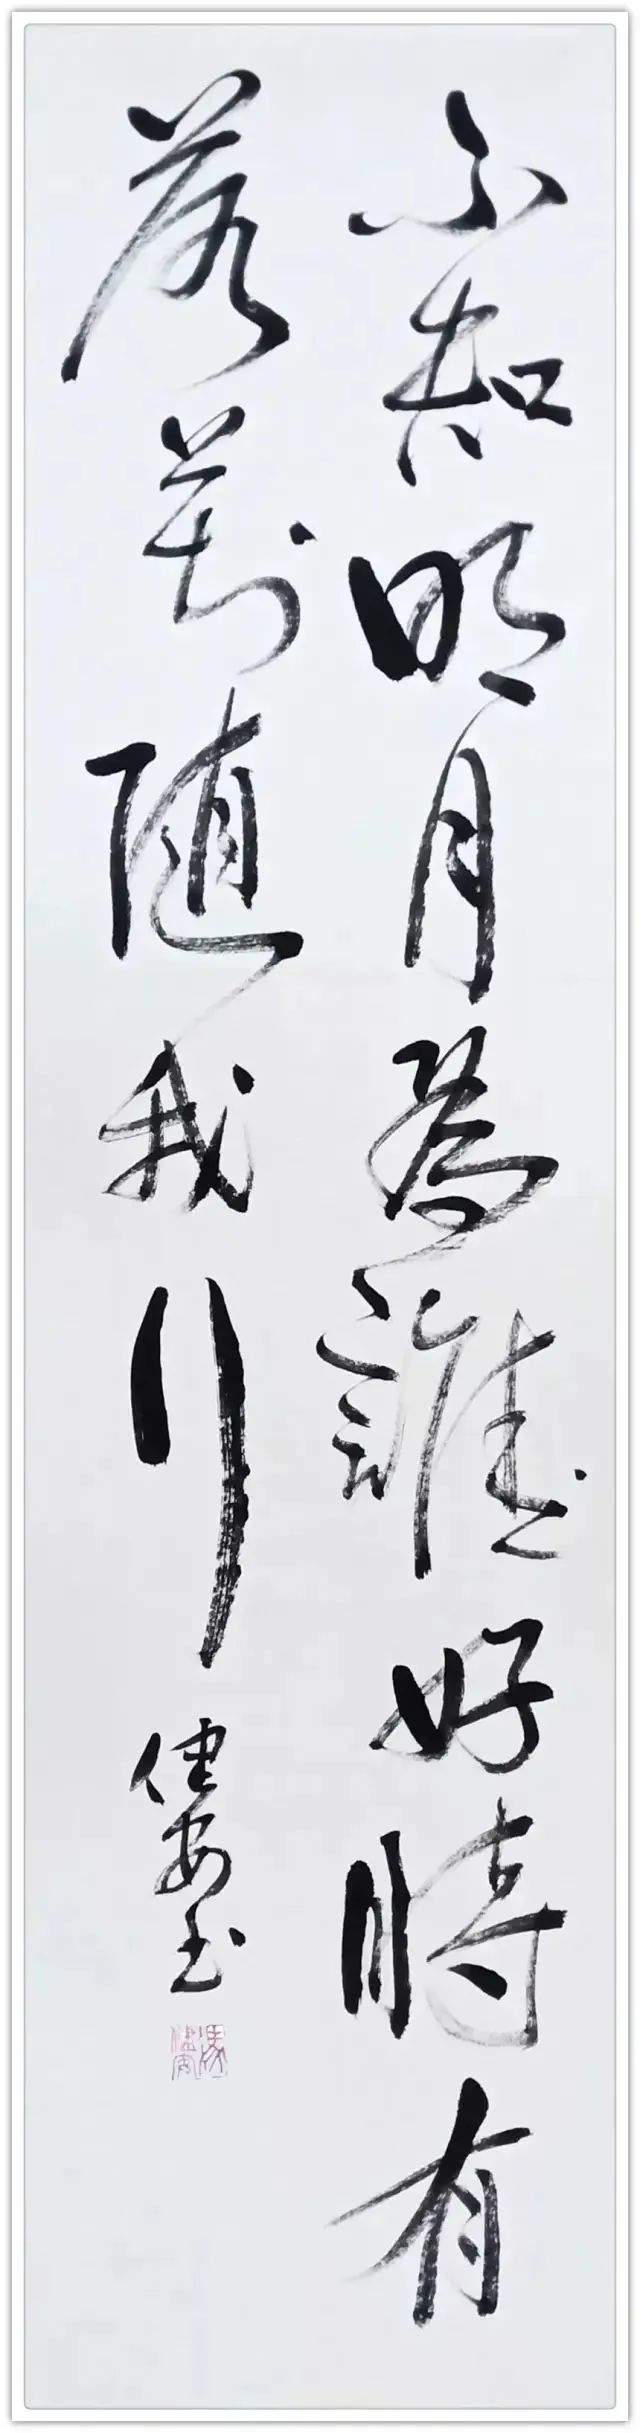 不知明月為誰好時有
落花隨我行
健安书